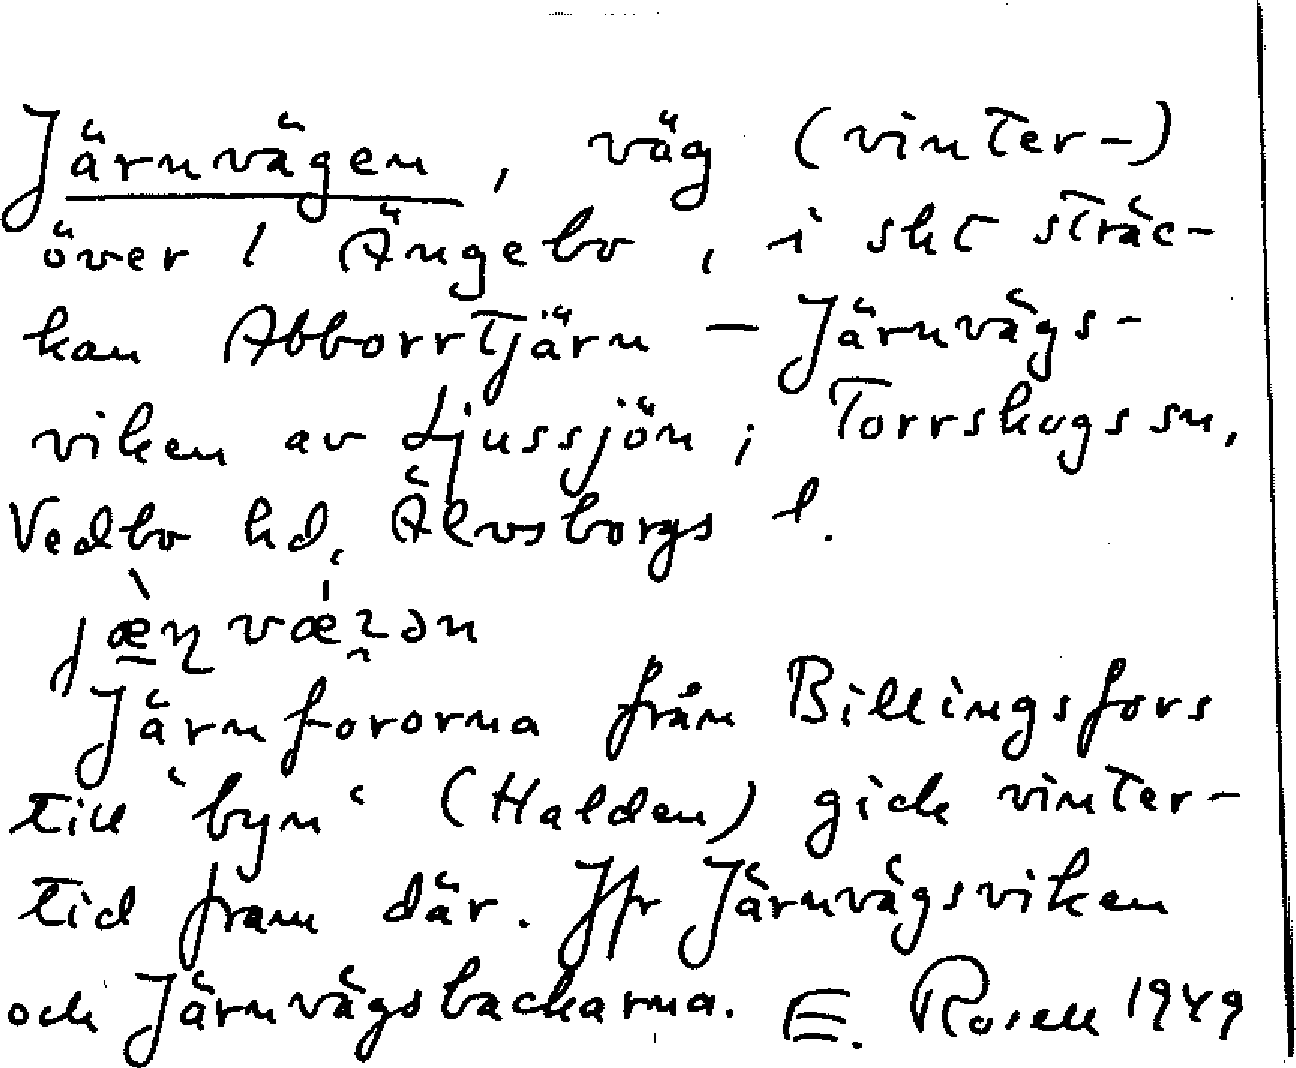 Järnvägen, väg (vinter-)
över l Ängebo, i skt sträc-
kan Abborrtjärn — Järnvägs-
viken av Ljussjön; Torrskogs sn,
Vedbo hd, Älvsborgs l.
Järnfororna från Billingsfors
till 'byn' (Halden) gick vinter-
tid fram där. Jfr Järnvägsviken
och Järnvägsbackarna. E. Rosell 1949